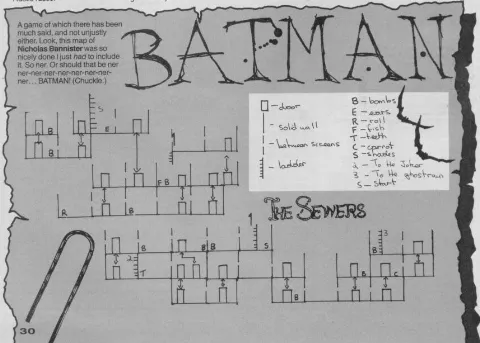 A game of which there has been
much said, and not unjustly
either. Look, this map of
Nicholas Bannister was so
nicely done I just had to include
it. So ner. Or should that be ner
ner-ner-ner-ner-ner-ner-ner-
ner... BATMAN! (Chuckle.)
BATMAN
door
solid wall
between screens
ladder
B - bombs
E - ears
R - roll
F - fish
T - teeth
C - carrot
S - shades
2 - To the Joker
3 - To the ghostrain
S - Start
3
B E
B
F B
R B
THE SEWERS
1
3
B B B S B
2
T
B C
B
30